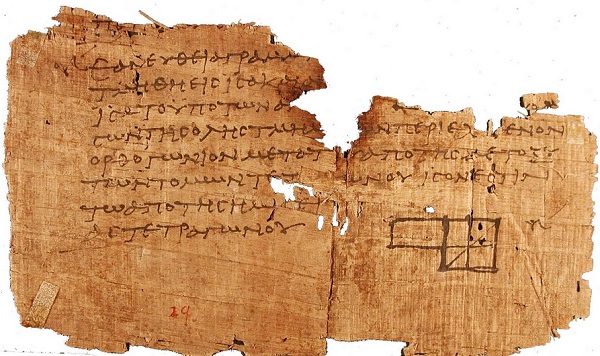 ΕΑΝ ΕΥΘΕΙΑ ΓΡΑΜΜ
ΤΜΗΘΗ ΕΙϹ ΙϹΑ ΚΑΙ Α
ΙϹΑ ΤΟ ΥΠΟ ΤΩΝ Α
ϹΩΝ ΤΗϹ ΟΛΗϹ ΤΜΗΜ ΩΝ ΠΕΡΙΕΧΟΜΕΝΟΝ
ΟΡΘΟΓΩΝΙΟΝ ΜΕΤΑ ΤΟΥ ΑΠΟ ΤΗϹ ΜΕΤΟΞΥ
ΤΩΝ ΤΟΜΩΝ ΤΕΤ ΩΝΟΥ ΙϹΟΝ ΕϹΤΙΝ
ΤΩ ΑΠΟ ΤΗϹ ΗΜΙϹΕΙ
ΑϹ ΤΕΤΡΑΓΩΝΟΥ
29